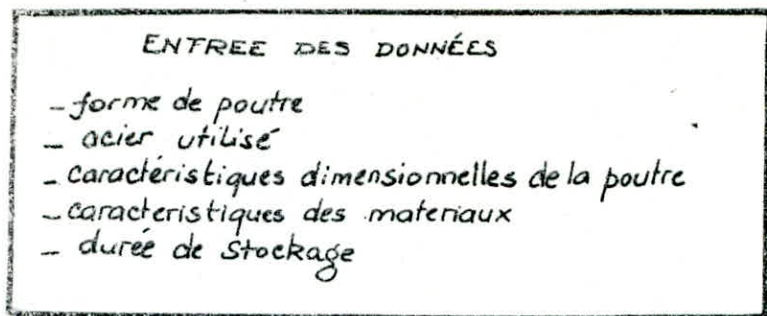 ENTREE DES DONNÉES
- forme de poutre
- acier utilisé
- caractéristiques dimensionnelles de la poutre
- caracteristiques des materiaux
- durée de stockage